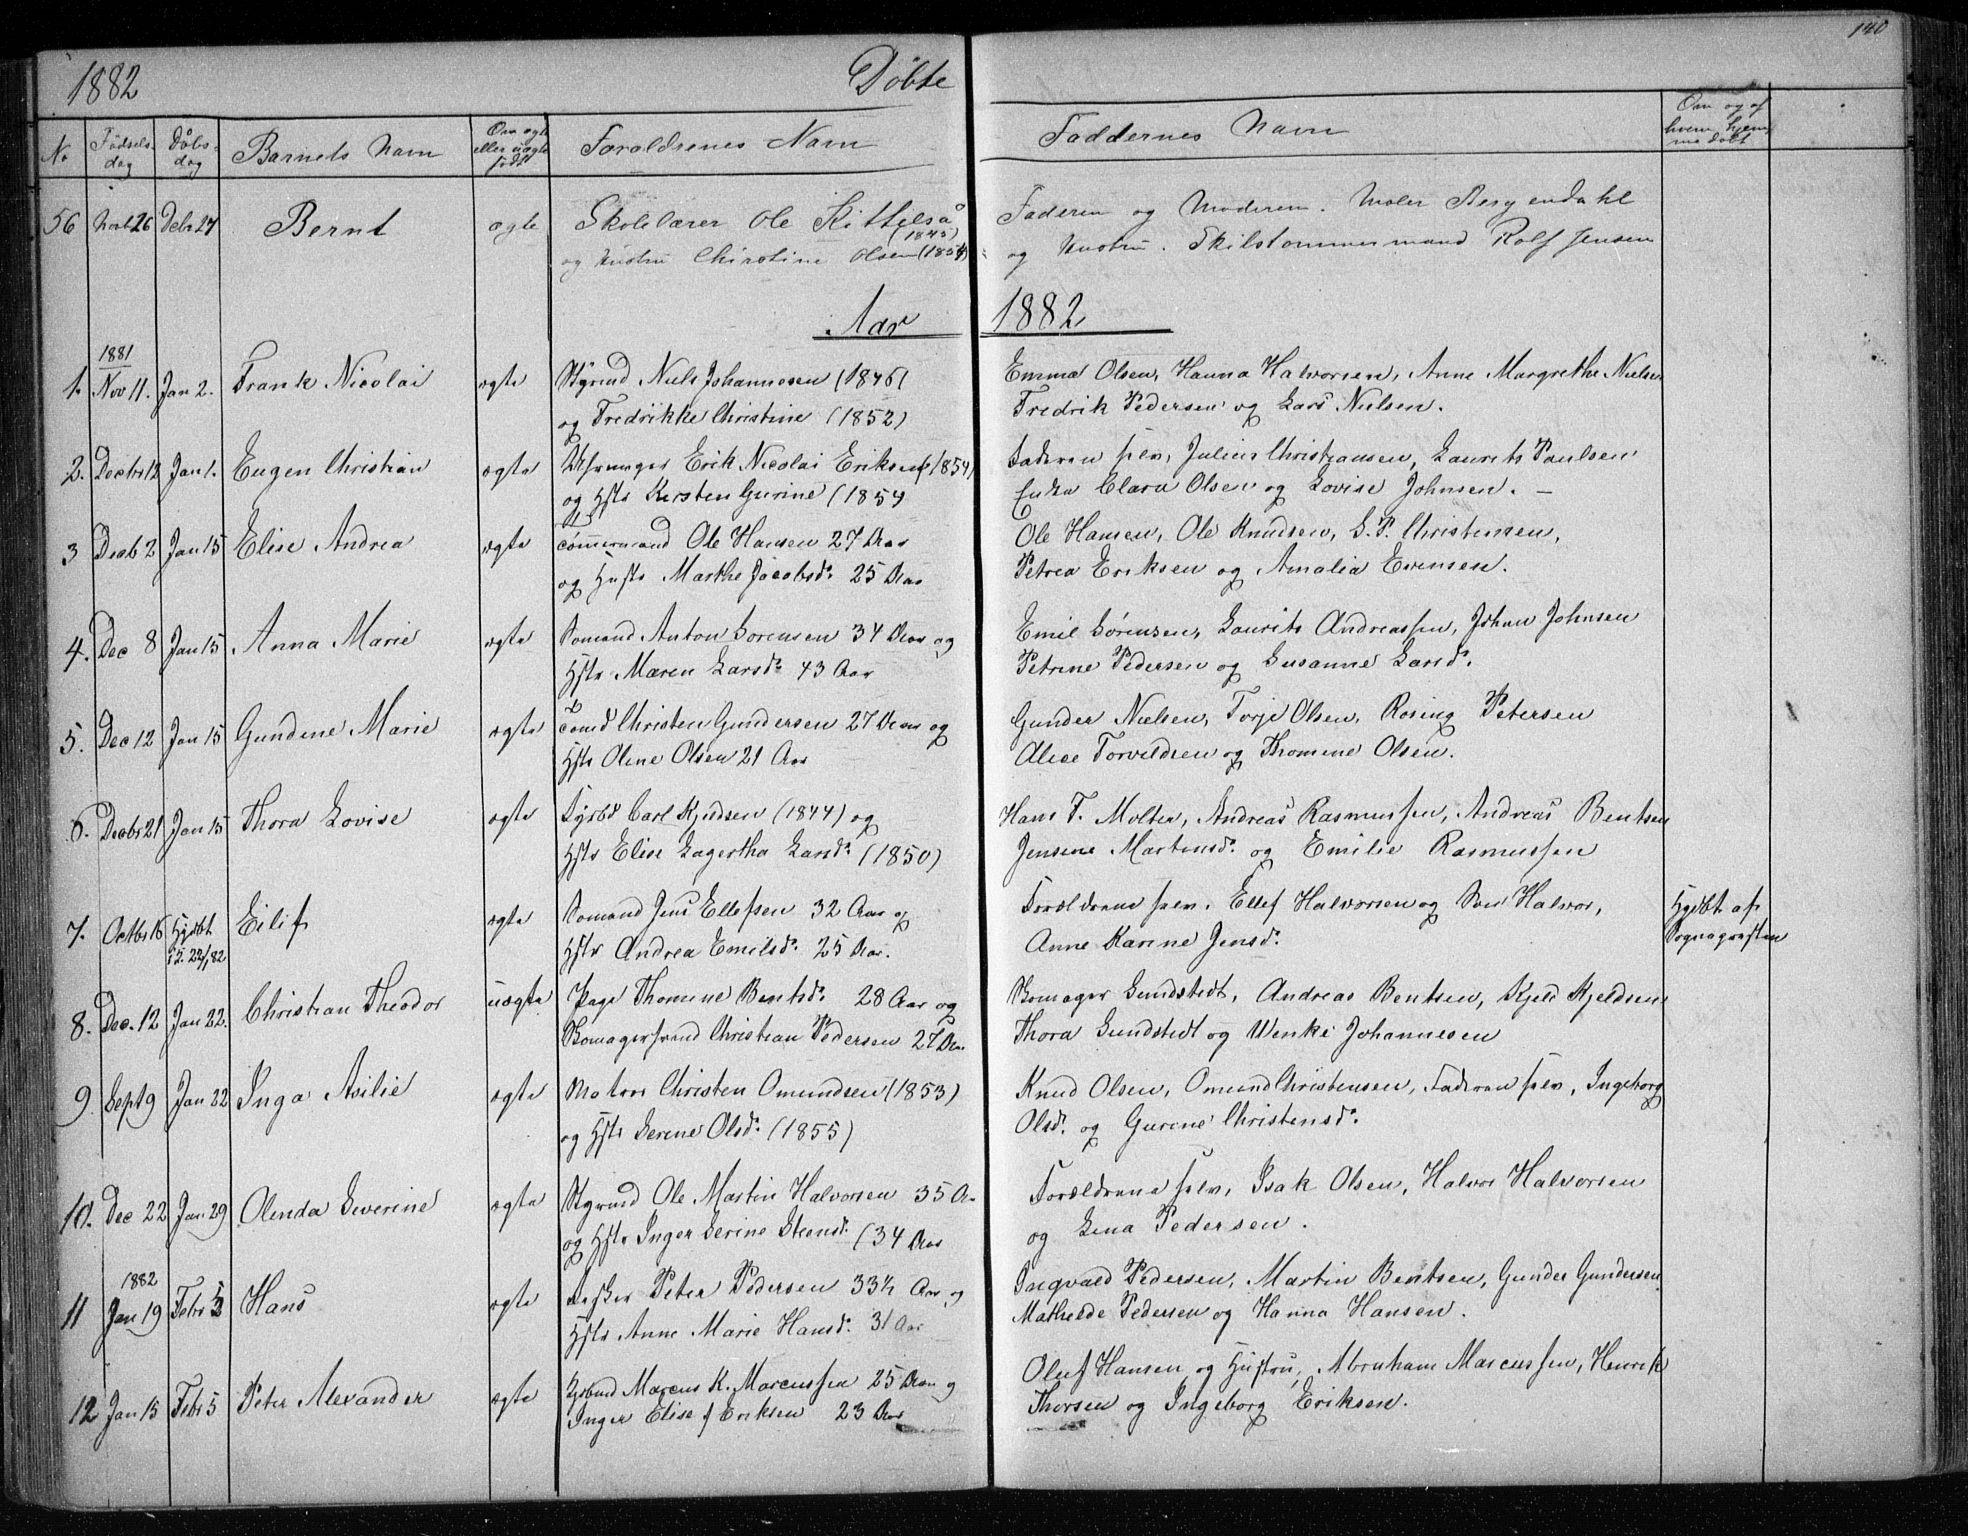 140
1882 Døbte
No Fødsels dag Døbs- dag Barnets Navn Om ægte eller uægte født Forældrenes Navn Faddernes Navn Om og af hvem hjemme døbt
56 Novb 26 Debr 27 Bernt ægte Skolelærer Ole Kittelså (1845) Faderen og Moderen. Maler Bergendahl
og Hustru Christine Olsen (1854) og Hustru. Skibstømmermand Rolf Jensen
Aar 1882
1881
1. Nov 11. Jan 2. Frank Nicolai ægte Styrmd Niels Johannesen (1846) Emma Olsen, Hanna Halvorsen, Anne Margrethe Nielsen
og Fredrikke Christine (1852) Fredrik Pedersen og Lars Nielsen.
2. Decbr 12 Jan 1. Eugen Christian ægte Erik Nicolai Eriksen (1854) Faderen selv, Julius Christiansen, Laurits Paulsen
og Hstr Kirsten Gurine (1854 Enke Clara Olsen og Lovise Johnsen. –
3 Decb 2 Jan 15 Elise Andrea ægte Tømmermand Ole Hansen 27 Aar Ole Hansen, Ole Knudsen, S. P. Christensen,
og Hustr Marthe Jacobsdr 25 Aar Petrea Eriksen og Amalia Evensen.
4. Dec 8 Jan 15 Anna Marie ægte Sømand Anton Sørensen 34 Aar og Emil Sørensen, Laurits Andreassen, Johan Johnsen
Hstr Maren Larsdr 43 Aar Petrine Pedersen og Susanne Larsdr.
5. Dec 12 Jan 15 Gundine Marie ægte Sømd Christen Gundersen 27 Aar og Gunder Nielsen, Torje Olsen, Rosing Petersen
Hstr Oline Olsen 21 Aar Alice Torvildsen og Thomine Olsen.
6. Decbr 21 Jan 15 Thora Lovise ægte Carl Kjeldsen (1844) og Hans F. Molter, Andreas Rasmussen, Andreas Bentsen
Hstr Elise Lagertha Larsdr (1850) Jensine Martinsdr og Emilie Rasmussen
7. Octbr 16 Hjdøbt 22/1 82 Eilif ægte Sømand Jens Ellefsen 32 Aar og Forældrene selv. Ellef Halvorsen og Halvor, Hjdøbt af
Hstr Andrea Emilsdr 25 Aar. Anne Karine Jensdr. Sognepræsten
8. Dec. 12 Jan 22. Christian Theodor uægte Pige Thomine Bentsdr 28 Aar og Skomager Sundstedt, Andreas Bentsen, Kjeld Kjeldsen
Skomagersvend Christian Pedersen 27 Aar Thora Sundstedt og Wenke Johannesen
9. Sept 9 Jan 22 Inga Asilie ægte Matros Christen Omundsen (1853) Knud Olsen, Omund Christensen, Faderen selv, Ingeborg
og Hstr Serine Olsdr (1855) Olsdr. og Gurine Christensdr
10. Dec 22 Jan 29 Olenda Severine ægte Styrmd Ole Martin Halvorsen 35 Aar Forældrene selv, Isak Olsen, Halvor Halvorsen
og Hstr Inger Serine Steensdr (34 Aar og Lina Pedersen.
1882
11 Jan 19 Febr 5 Hans ægte Fisker Peter Pedersen 33½ Aar og Ingvald Pedersen, Martin Bentsen, Gunder Gundersen
Hstr Anne Marie Hansdr. 31 Aar Mathilde Pedersen og Hanna Hansen.
12 Jan 15 Febr 5 Peter Alexander ægte Marcus K. Marcussen 25 Aar og Oluf Hansen og Hustru, Abraham Marcussen, Henrik
Inger Elise f Eriksen 23 Aar Thorsen og Ingeborg Eriksen.